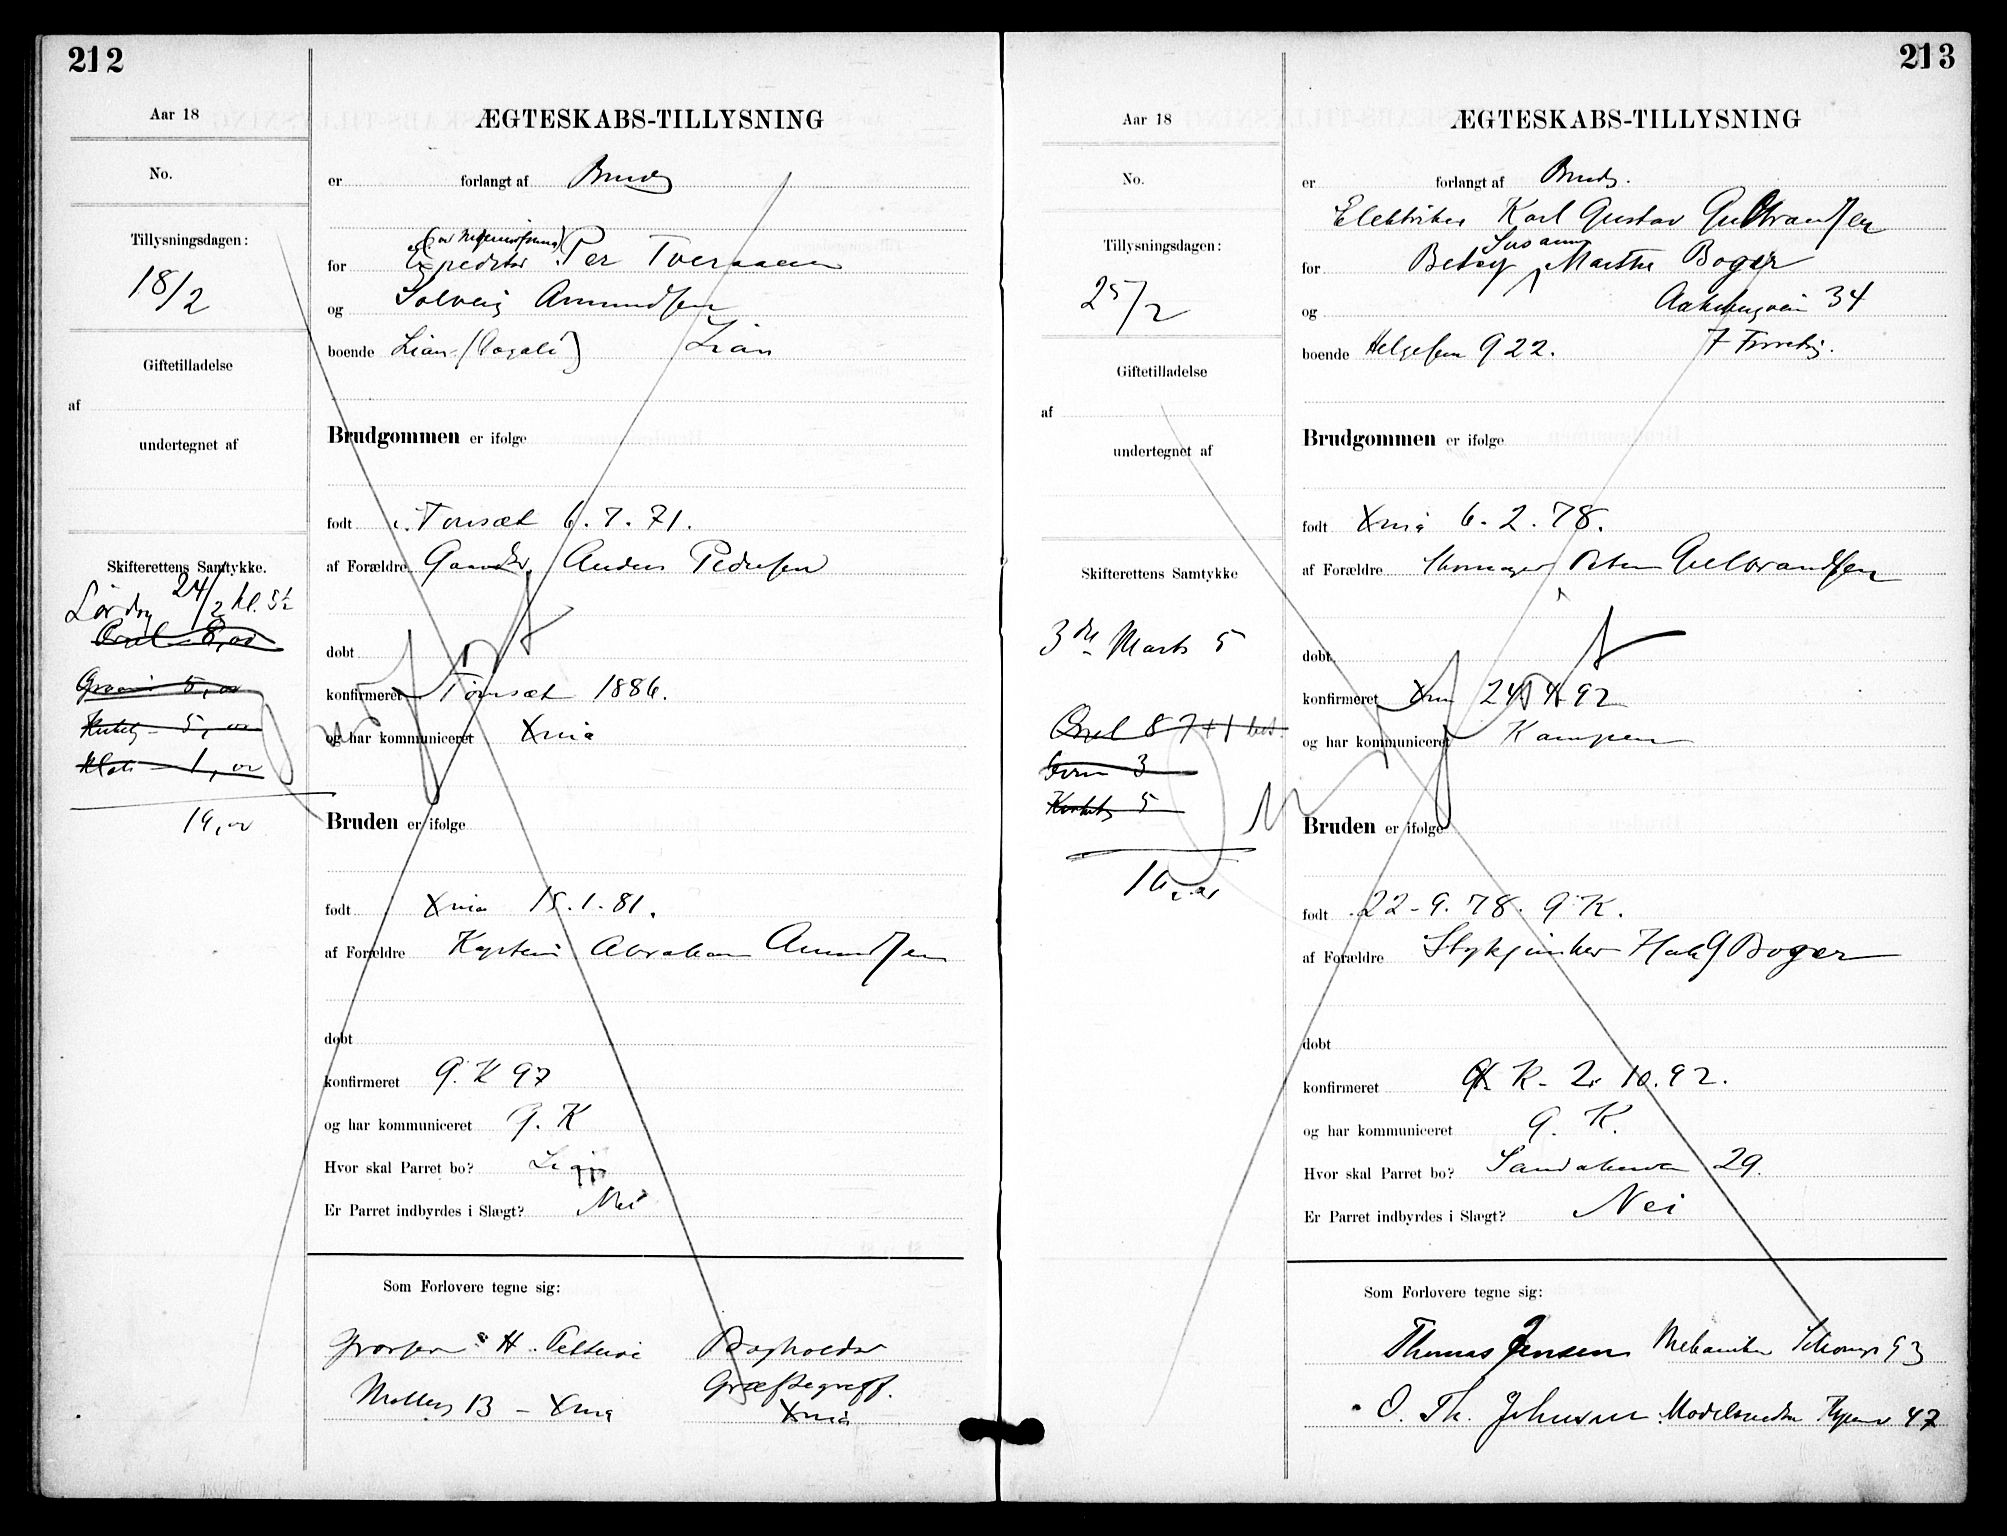 212
Aar 18
No.
Tillysningsdagen:
18/2
Giftetilladelse
af
undertegnet af
Skifterettens Samtykke.
Lørdag 24/2 kl. 5½
8,00
5,00
5,00
1,00
19,00
ÆGTESKABS-TILLYSNING
er forlangt af Brudg
for Per Tveraaen
og Solveig Amundsen
boende Lian Lian
Brudgommen er ifølge
født i Tønsæt 6.7.71.
af Forældre Gaardbr. Anders Pedersen
døbt
konfirmeret Tønsæt 1886.
og har kommuniceret Xnia
Bruden er ifølge
født Xnia 15.1.81.
af Forældre Kaptein Abraham Amundsen
døbt
konfirmeret G.K 97
og har kommuniceret G.K
Hvor skal Parret bo? Lian
Er Parret indbyrdes i Slægt? Nei
Som Forlovere tegne sig:
H. Bogholder
Møllerg 13 - Xnia Xnia
213
Aar 18
No.
Tillysningsdagen:
25/2
Giftetilladelse
af
undertegnet af
Skifterettens Samtykke
3die Marts 5
Orgel 8 7+1
3
5
16,00
ÆGTESKABS-TILLYSNING
er forlangt af Brudg.
Elektriker Karl Gustav Gulbrandsen
Susanne
for Betsy Marthe Boger
og 34
boende Helgesens G 22. 7
Brudgommen er ifølge
født Xnia 6.2.78.
af Forældre Skomager Peter Gulbrandsen
døbt
konfirmeret Xnia 24 4 92
og har kommuniceret Kampen
Bruden er ifølge
født 22-9.78. G K.
af Forældre Stykjunker Boger
døbt
konfirmeret G K - 2. 10.92.
og har kommuniceret G. K.
Hvor skal Parret bo? Sandakerv 29.
Er Parret indbyrdes i Slægt? Nei
Som Forlovere tegne sig:
Thomas Jensen Mekaniker 93
O. Th. Johnsen Modelsnedker 47